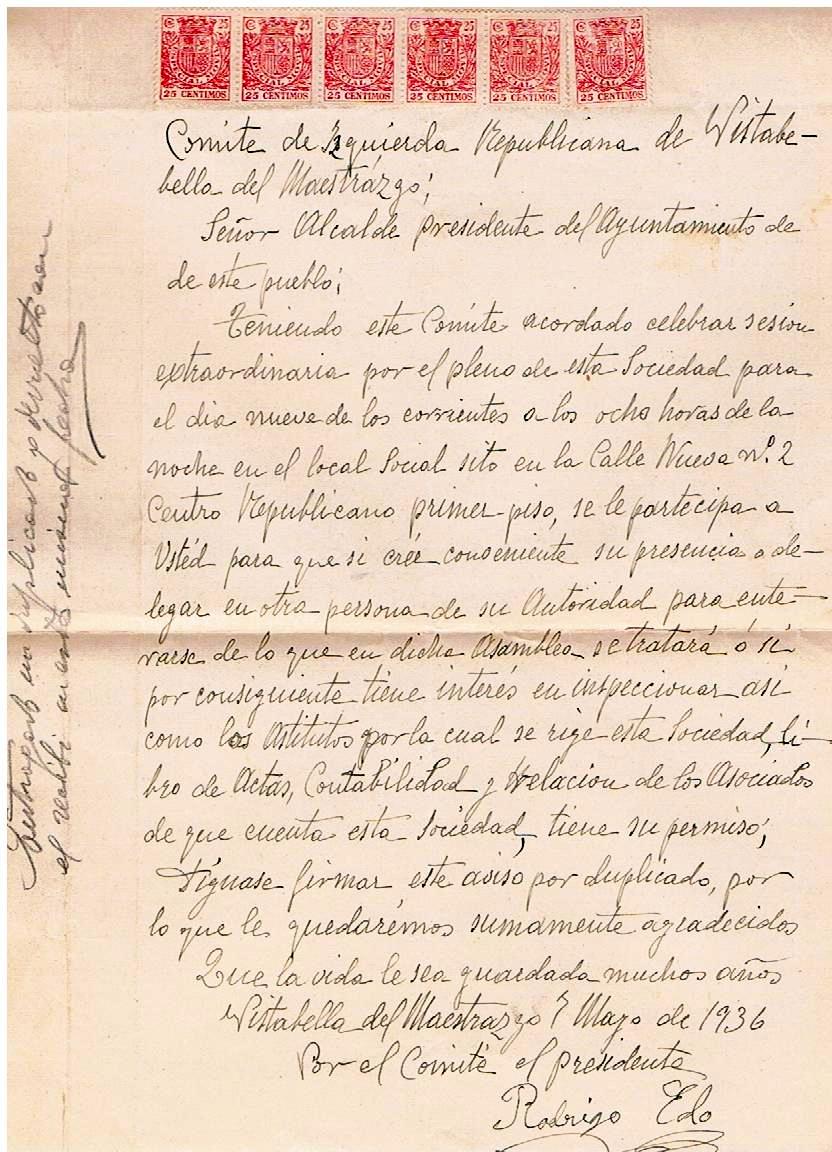 25 25 25 25 25 25
ESPECIAL MOVIL ESPECIAL MOVIL ESPECIAL MOVIL ESPECIAL MOVIL ESPECIAL MOVIL ESPECIAL MOVIL
25 CENTIMOS 25 CENTIMOS 25 CENTIMOS 25 CENTIMOS 25 CENTIMOS 25 CENTIMOS
Comite de Izquierda Republicana de Vistabe-
bella del Maestrázgo;
Señor Alcalde presidente del Ayuntamiento de
de este pueblo;
Teniendo este Comite acordado celebrar sesion
extraordinaria por el pleno de esta Sociedad para
el dia nueve de los corrientes a los ocho horas de la
noche en el local Social sito en la Calle Nueva nº. 2
Centro Republicano primer-piso, se le partecipa a
Ustéd para que si créé conveniente su presencia o de-
legar en otra persona de su Autoridad para ente-
rarse de lo que en dicha Asamblea se tratará ó si
por consiguiente tiene interés en inspeccionar asi
como los Astitutos por la cual se rige esta Sociedad, li-
bro de Actas, Contabilidad y Relacion de los Asociados
de que cuenta esta Sociedad, tiene su permiso;
Díguase firmar este aviso por duplicado, por
lo que le quedarémos sumamente agradecidos
Que la vida le sea guardada muchos años
Vistabella del Maestrazgo 7 Mayo de 1936
Por el Comité el presidente
Rodrigo Edo
Entregado un duplicado y devuelto con
el recibi en esta misma fecha